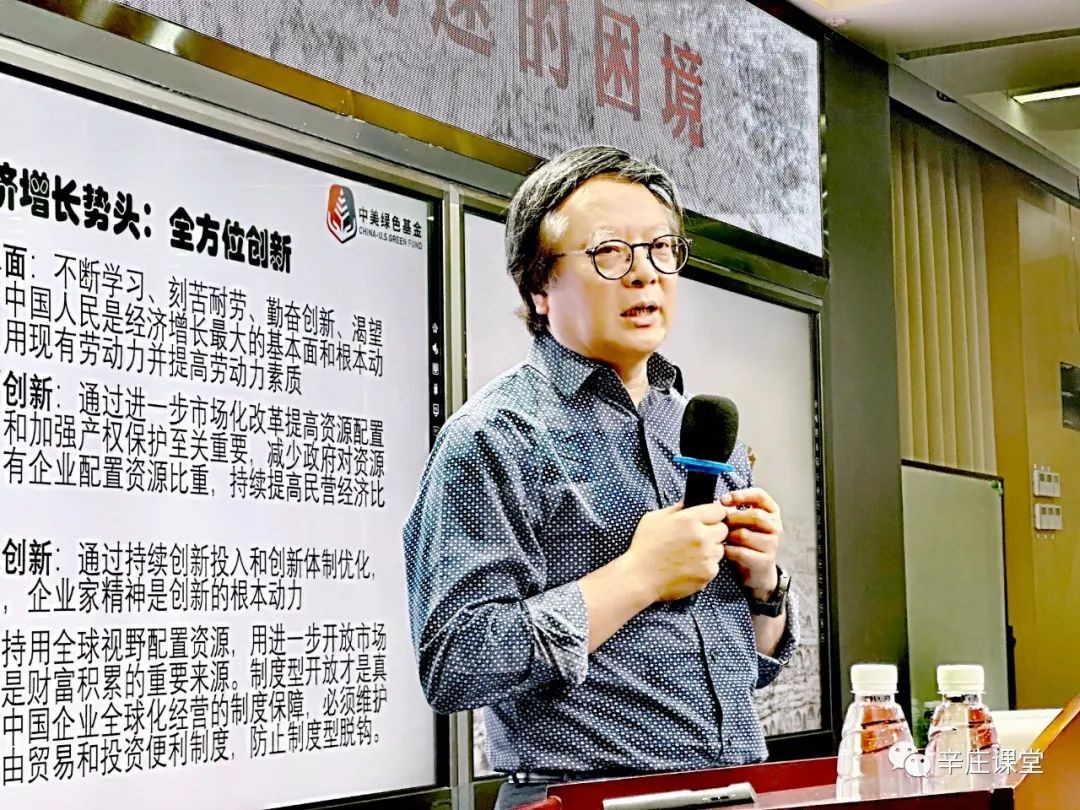 述的困境
济增长势头：全方位创新
中美绿色基金
CHINA-U.S.GREEN FUND
面：不断学习、刻苦耐劳、勤奋创新、渴望
中国人民是经济增长最大的基本面和根本动
用现有劳动力并提高劳动力素质
创新：通过进一步市场化改革提高资源配置
和加强产权保护至关重要，减少政府对资源
有企业配置资源比重，持续提高民营经济比
创新：通过持续创新投入和创新体制优化，
，企业家精神是创新的根本动力
持用全球视野配置资源，用进一步开放市场
是财富积累的重要来源。制度型开放才是真
中国企业全球化经营的制度保障，必须维护
由贸易和投资便利制度，防止制度型脱钩。
辛庄课堂